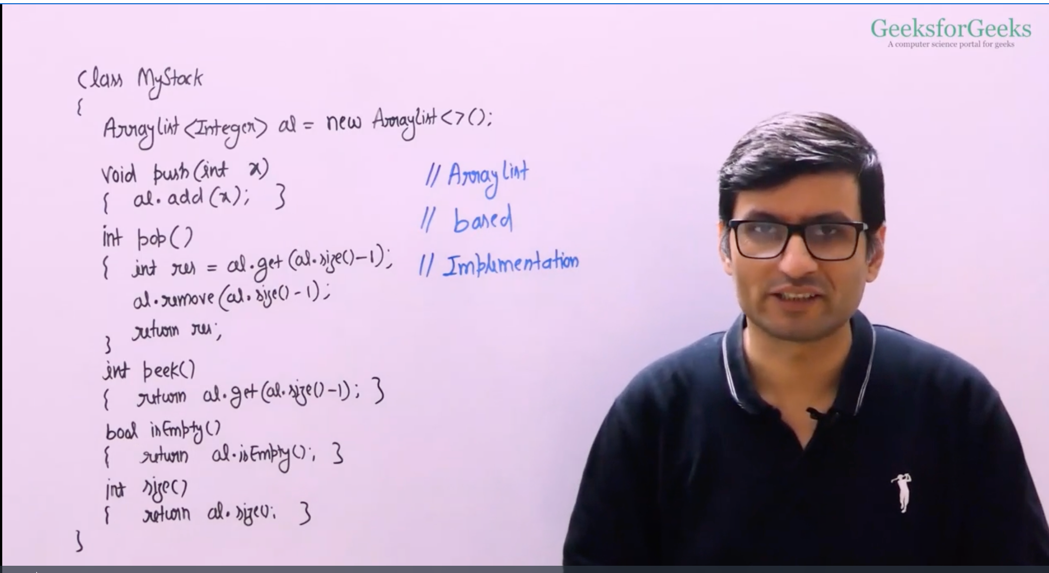 GeeksforGeeks
A computer science portal for geeks
class MyStack
{
ArrayList<Integer> al = new ArrayList<>();
void push(int x)
{ al.add(x); }
int pop()
{ int res = al.get(al.size()-1);
al.remove(al.size()-1);
return res;
}
int peek()
{ return al.get(al.size()-1); }
bool isEmpty()
{ return al.isEmpty(); }
int size()
{ return al.size(); }
}
// ArrayList
// based
// Implementation